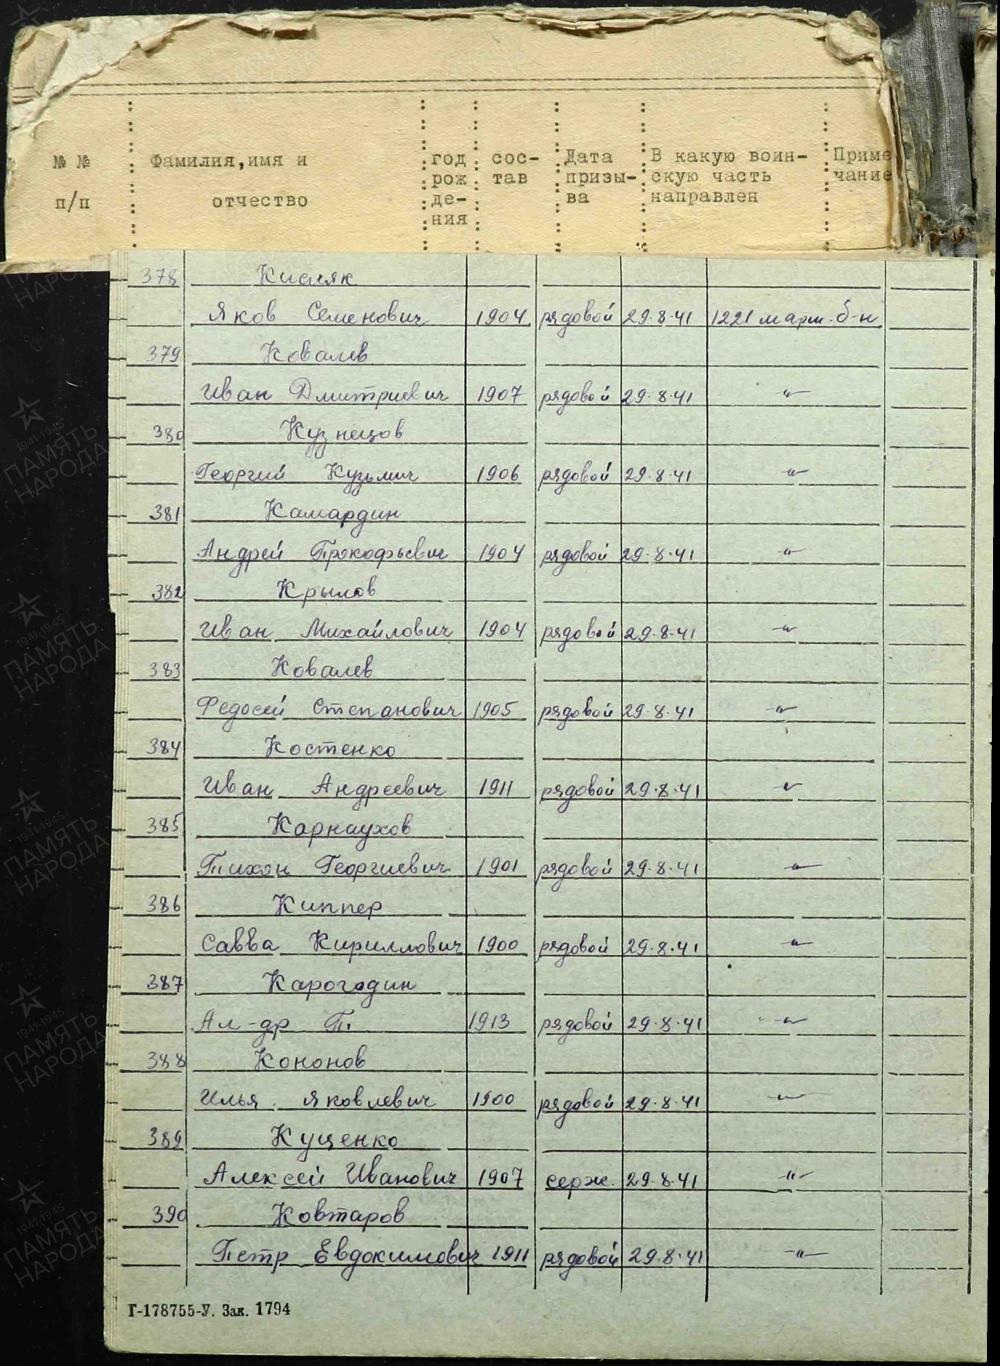 № № Фамилия, имя и год сос- Дата В какую воин- Приме
рож тав призы- скую часть чание
п/п отчество де- ва направлен
ния
378 Кисляк
Яков Семенович 1904 рядовой 29.8.41 1221 марш. б-н
379 Ковалев
Иван Дмитриевич 1907 рядовой 29.8.41 -"-
380 Кузнецов
Георгий Кузьмич 1906 рядовой 29.8.41 -"-
381 Камардин
Андрей Прокофьевич 1904 рядовой 29.8.41 -"-
382 Крылов
Иван Михайлович 1904 рядовой 29.8.41 -"-
383 Ковалев
Федосей Степанович 1905 рядовой 29.8.41 -"-
384 Костенко
Иван Андреевич 1911 рядовой 29.8.41 -"-
385 Карнаухов
Тихон Георгиевич 1901 рядовой 29.8.41 -"-
386 Киппер
Савва Кириллович 1900 рядовой 29.8.41 -"-
387 Карогодин
Ал-др П 1913 рядовой 29.8.41 -"-
388 Кононов
Илья Яковлевич 1900 рядовой 29.8.41 -"-
389 Куценко
Алексей Иванович 1907 серж. 29.8.41 -"-
390 Ковтаров
Петр Евдокимович 1911 рядовой 29.8.41 -"-
Г-178755-У. Зак. 1794
1941-1945
ПАМЯТЬ
НАРОДА